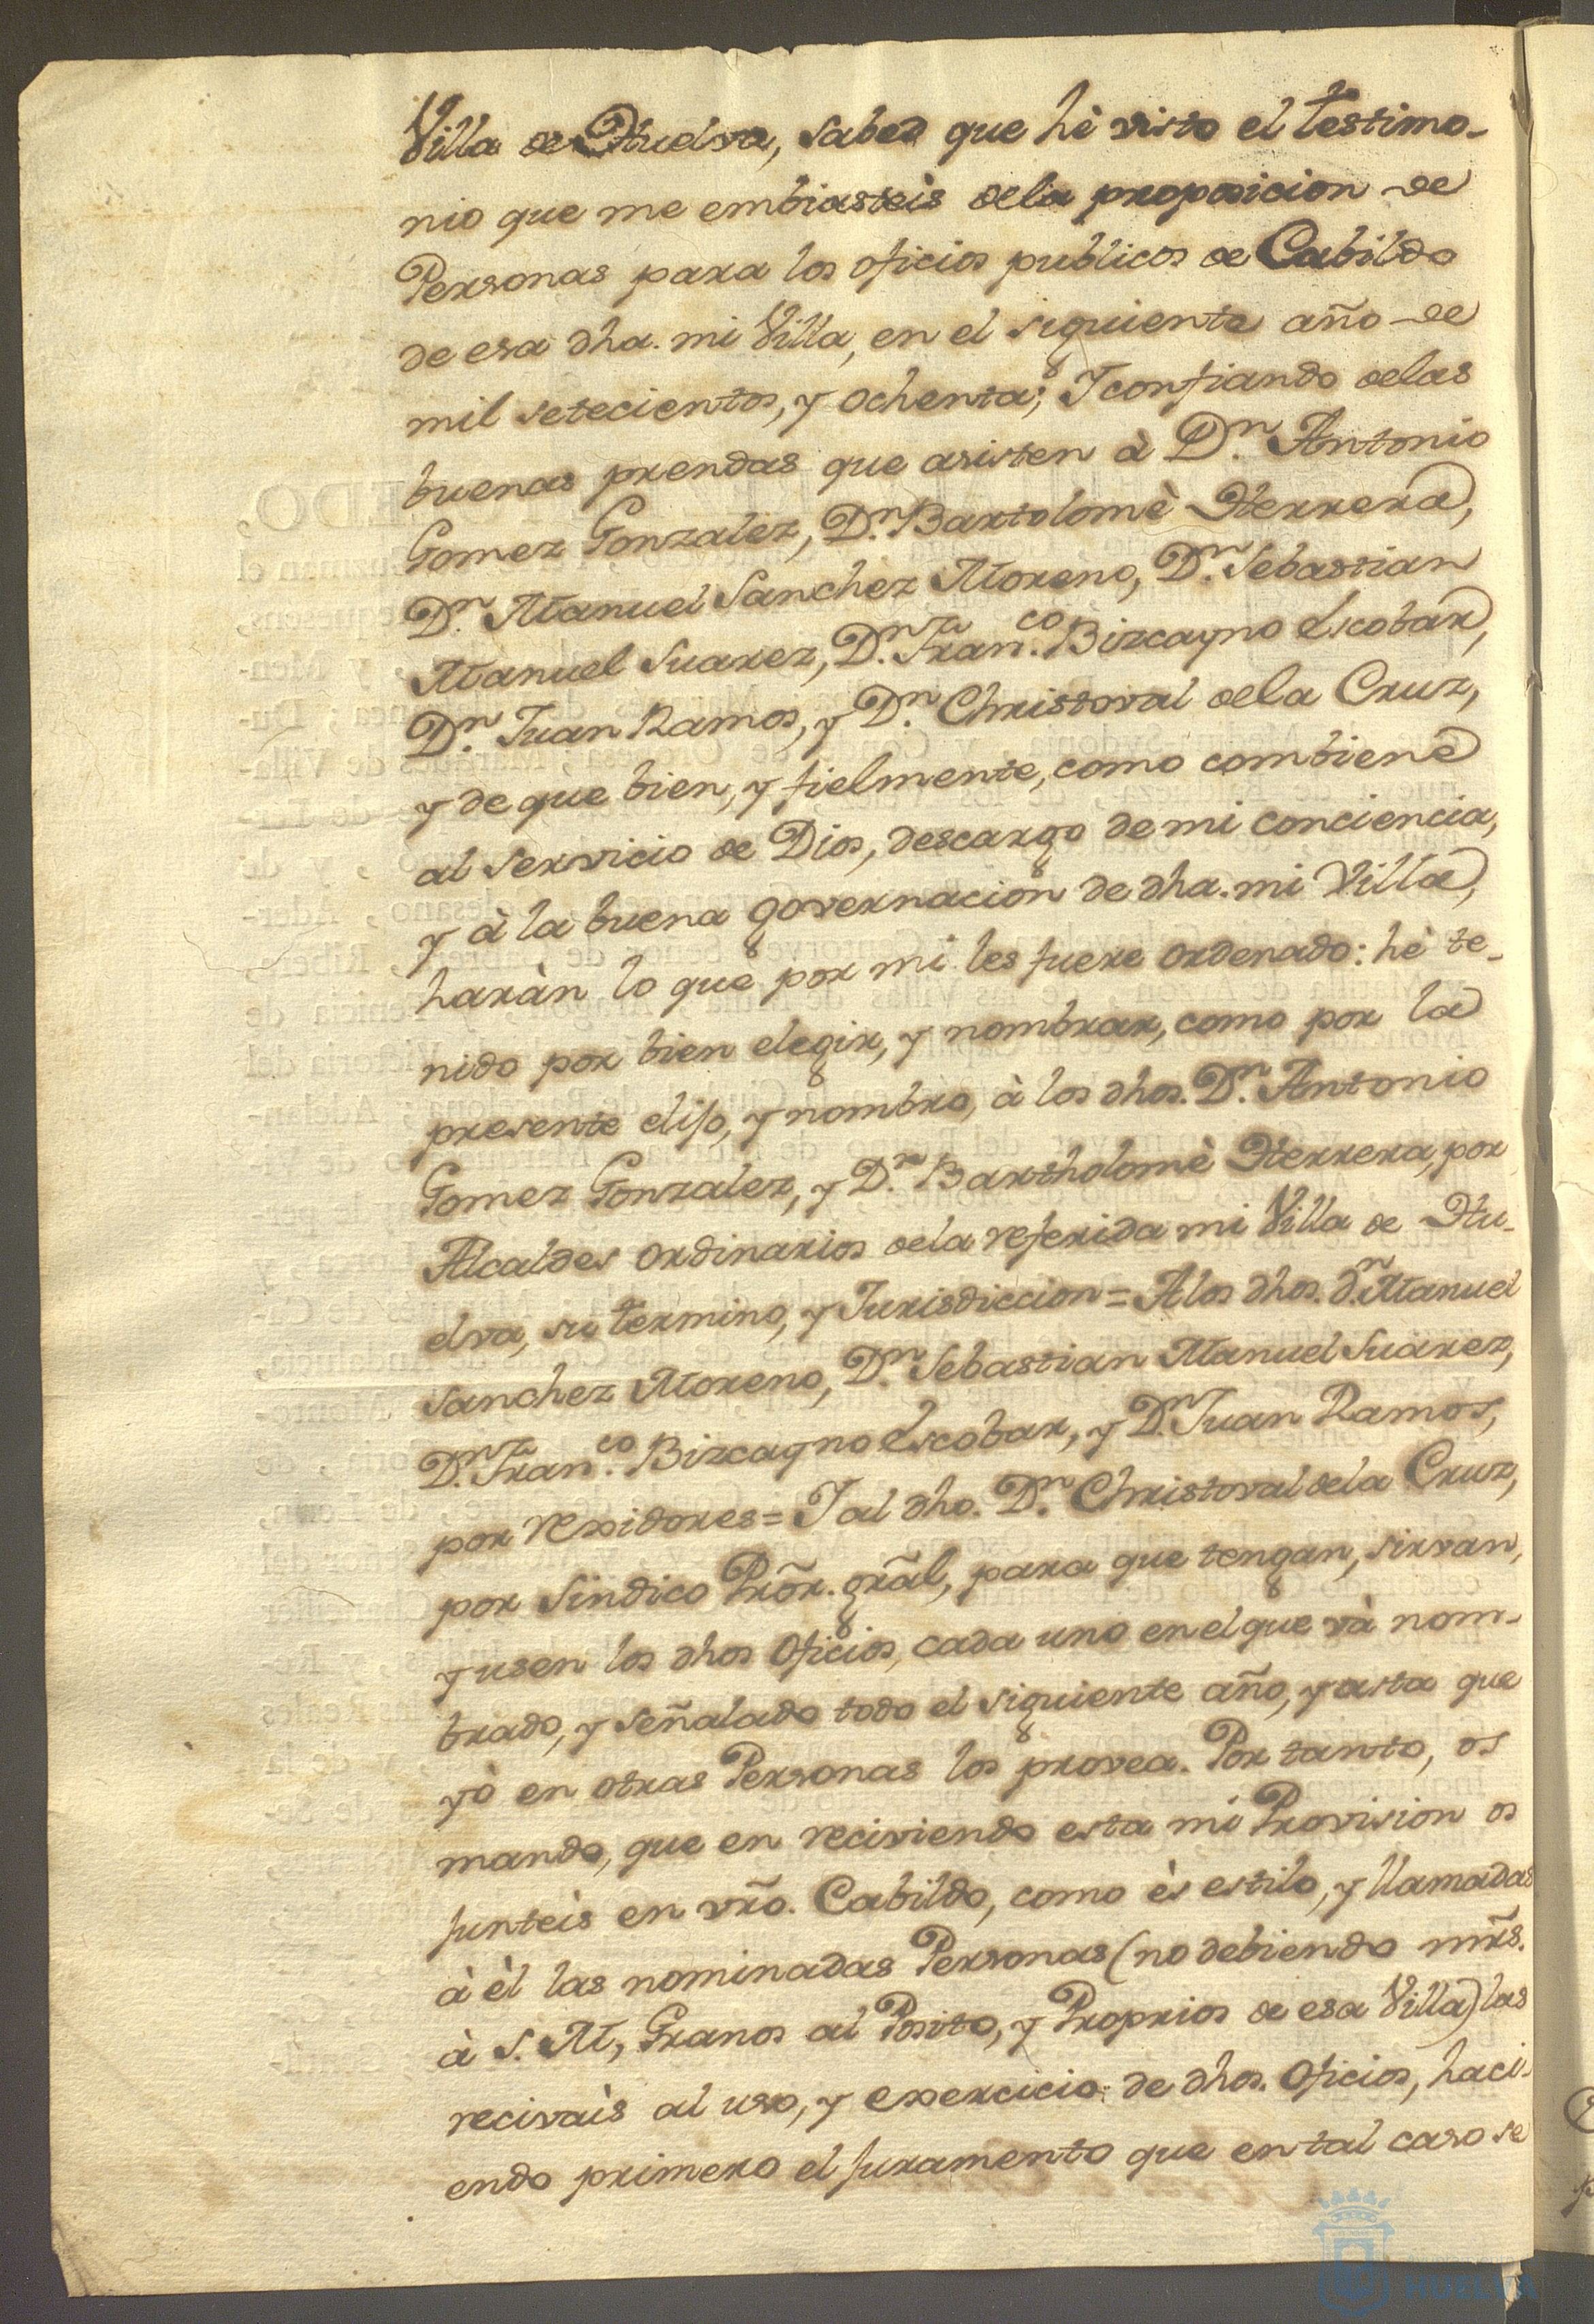 Villa de Huelva, sabed que hè visto el testimo-
nio que me embiasteis dela proposicion de
Personas para los oficios publicos de Cabildo
de esa dha. mi Villa, en el siguiente año de
mil setecientos, y ochenta; Y confiando delas
buenas prendas que asisten à Dn. Antonio
Gomez Gonzalez, Dn. Bartolomè Herrera,
Dn. Manuel Sanchez Moreno, Dn. Sebastian
Manuel Suarez, Dn. Franco. Bizcayno Escobar,
Dn. Juan Ramos, y Dn. Christoval dela Cruz,
y de que bien, y fielmente, como combiene
al servicio de Dios, descargo de mi conciencia,
y à la buena governacion de dha. mi Villa,
haràn lo que por mi les fuere ordenado: hè te-
nido por bien elegir, y nombrar, como por la
presente elijo, y nombro, à los dhos. Dn. Antonio
Gomez Gonzalez, y Dn. Bartholomè Herrera, por
Alcaldes ordinarios dela referida mi Villa de Hu-
elva, su termino, y Jurisdiccion = A los dhos. dn. Manuel
Sanchez Moreno, Dn. Sebastian Manuel Suarez,
Dn. Franco. Bizcayno Escobar, y Dn. Juan Ramos,
por rexidores = Y al dho. Dn. Christoval dela Cruz,
por Sindico Prõr. grãl, para que tengan, sirvan,
y usen los dhos Oficios, cada uno en el que và nom-
brado, y señalado todo el siguiente año, y asta que
yò en otras Personas los provea. Por tanto, os
mando, que en reciviendo esta mi Provision os
junteis en vrõ. Cabildo, como ès estilo, y llamadas
à èl las nominadas Personas (no debiendo mrs̃.
à S. M, Granos al Posito, y Proprios de esa Villa) las
recivais al uso, y exercicio de dhos. Oficios, haci-
endo primero el juramento que en tal caso se
HUELVA